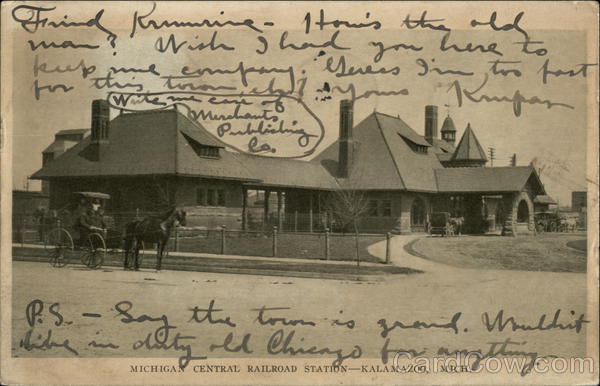 Friend Krumrine - How's the old
man? Wish I had you here to
keep me company. Guess I'm too fast
for this town, eh? Yours Krupax
Write me care of
Merchants
Publishing
Co.
P.S. - Say the town is grand. Wouldn't
live in dirty old Chicago for anything.
MICHIGAN CENTRAL RAILROAD STATION—KALAMAZOO, MICH.
CardCow.com